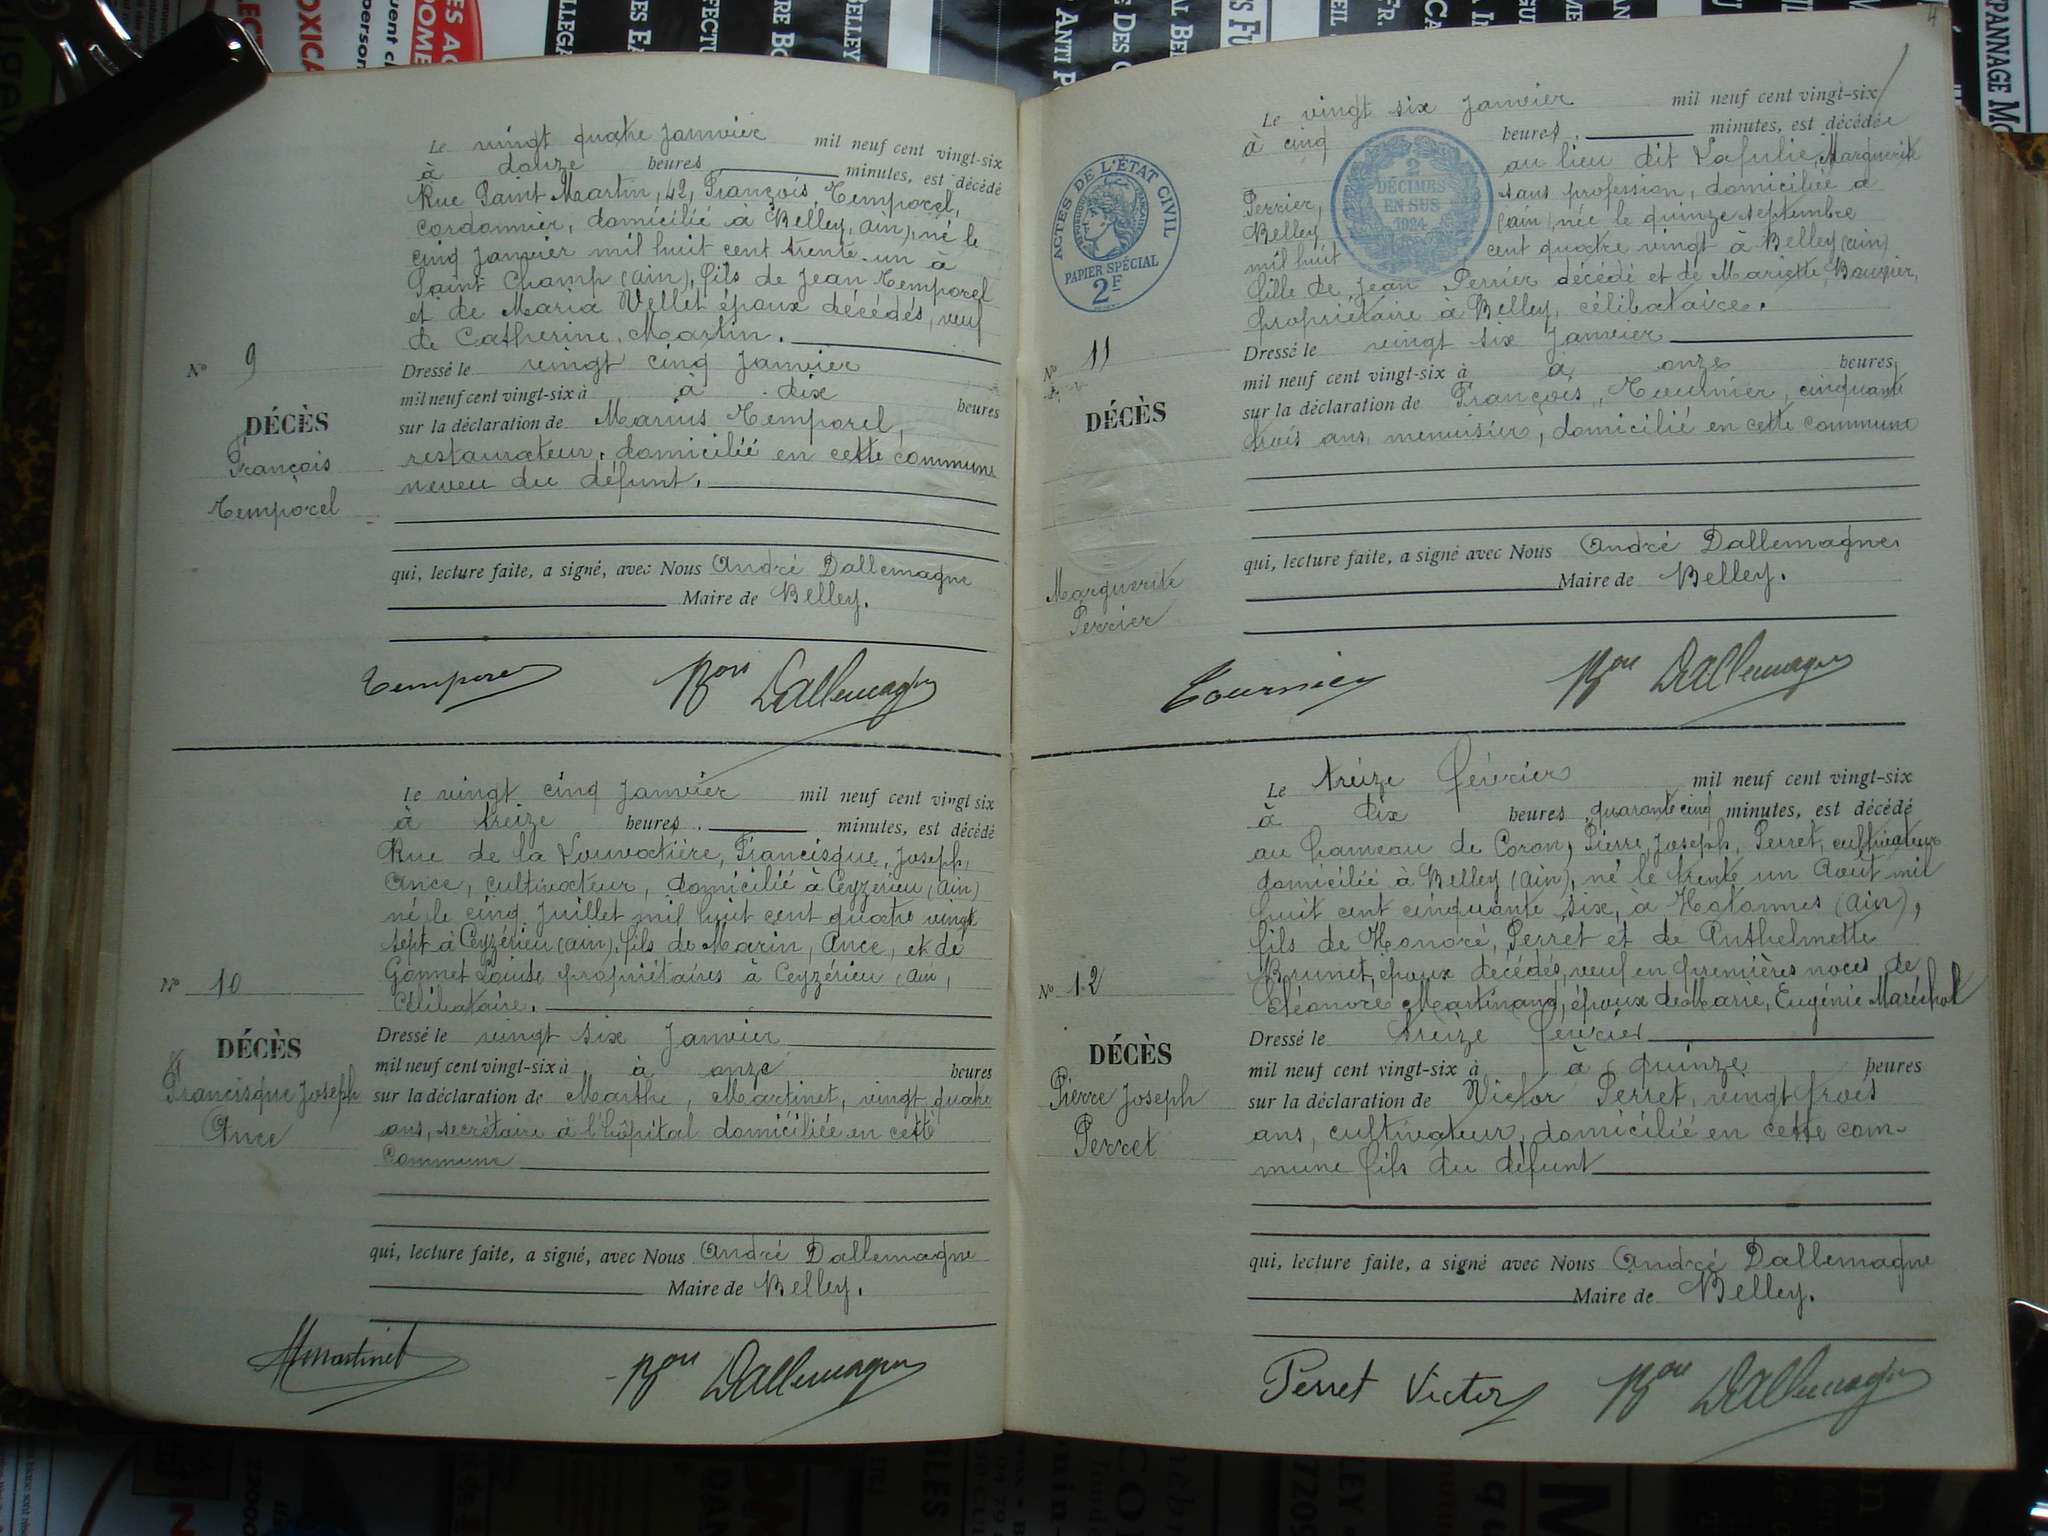 Le vingt quatre janvier mil neuf cent vingt-six
à douze heures minutes, est décédé
Rue Saint Martin, 42, François, Temporel,
cordonnier, domicilié à Belley, (ain), né le
cinq janvier mil huit cent trente-un à
Saint Champ (ain), fils de Jean Temporel
et de Maria Vellet époux décédés, veuf
de Catherine, Martin.
N° 9
DÉCÈS
François
Temporel
Dressé le vingt cinq janvier
mil neuf cent vingt-six à à dix heures
sur la déclaration de Marius Temporel,
restaurateur, domicilié en cette commune
neveu du défunt.
qui, lecture faite, a signé, avec Nous André Dallemagne
Maire de Belley.
Temporel Bon Dallemagne
Le vingt cinq janvier mil neuf cent vingt six
à treize heures minutes, est décédé
Rue de la Louvatière, Francisque, Joseph,
Ance, cultivateur, domicilié à Ceyzérieu (ain)
né le cinq Juillet mil huit cent quatre vingt
sept à Ceyzérieu (ain), fils de Marin, Ance, et de
Gonnet Louise propriétaires à Ceyzérieu (ain,
célibataire.
N° 10
DÉCÈS
Francisque Joseph
Ance
Dressé le vingt six janvier
mil neuf cent vingt-six à à onze heures
sur la déclaration de Marthe, Martinet, vingt quatre
ans, secrétaire à l'hôpital domiciliée en cette
commune
qui, lecture faite, a signé, avec Nous André Dallemagne
Maire de Belley.
MMartinet Bon Dallemagne
4
Le vingt six janvier mil neuf cent vingt-six
à cinq heures minutes, est décédée
au lieu dit Lafulie, Marguerite
Perrier, sans profession, domiciliée à
Belley (ain), née le quinze septembre
mil huit cent quatre vingt à Belley (ain)
fille de Jean Perrier décédé et de Mariette, Bouvier,
propriétaire à Belley, célibataire.
ACTES DE L'ÉTAT CIVIL
PAPIER SPÉCIAL
2F
2
DÉCIMES
EN SUS
1924
N° 11
DÉCÈS
Marguerite
Perrier
Dressé le vingt six janvier
mil neuf cent vingt-six à à onze heures
sur la déclaration de François, Tournier, cinquante
trois ans, menuisier, domicilié en cette commune
qui, lecture faite, a signé avec Nous André Dallemagne
Maire de Belley.
Tournier Bon Dallemagne
Le treize février mil neuf cent vingt-six
à dix heures quarante cinq minutes, est décédé
au hameau de Coron, Pierre, Joseph, Perret, cultivateur
domicilié à Belley (ain), né le trente un Août mil
huit cent cinquante six, à Hotonnes (ain),
fils de Honoré, Perret et de Anthelmette
Brunet, époux décédés, veuf en premières noces de
Eléonore Martinand, époux de Marie, Eugénie Maréchal
N° 12
DÉCÈS
Pierre Joseph
Perret
Dressé le treize février
mil neuf cent vingt-six à à quinze heures
sur la déclaration de Victor Perret, vingt trois
ans, cultivateur, domicilié en cette com-
mune fils du défunt
qui, lecture faite, a signé avec Nous André Dallemagne
Maire de Belley.
Perret Victor Bon Dallemagne